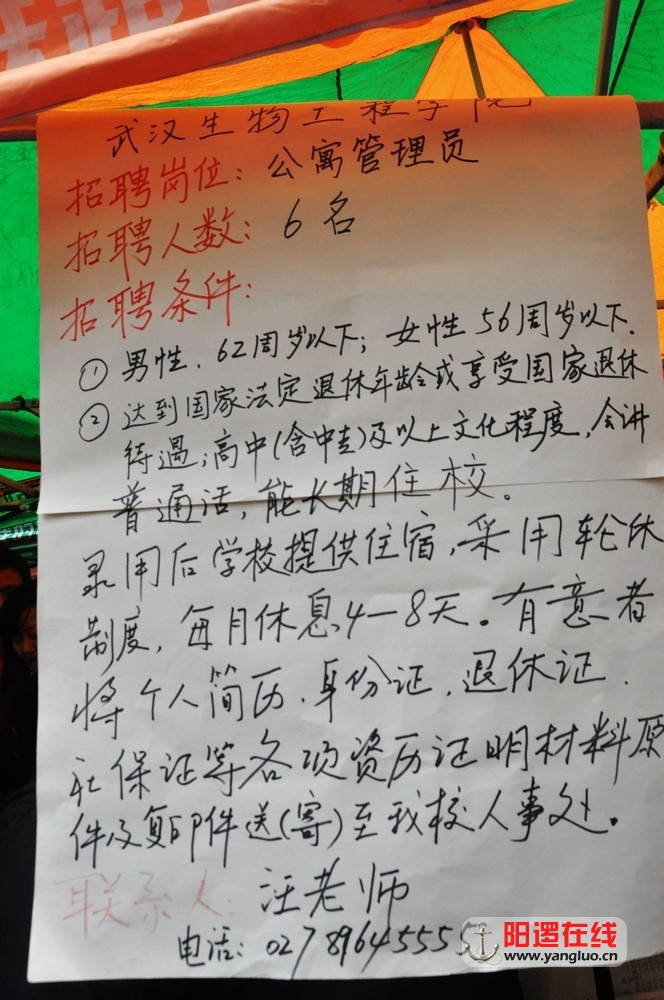 武汉生物工程学院
招聘岗位：公寓管理员
招聘人数：6名
招聘条件：
① 男性、62周岁以下；女性56周岁以下.
② 达到国家法定退休年龄或享受国家退休
待遇；高中(含中专)及以上文化程度，会讲
普通话，能长期住校。
录用后学校提供住宿，采用轮休
制度，每月休息4—8天。有意者
将个人简历、身份证、退休证、
社保证等各项资历证明材料原
件及复印件送(寄)至我校人事处。
联系人：汪老师
电话：027 89645555
阳逻在线
www.yangluo.cn